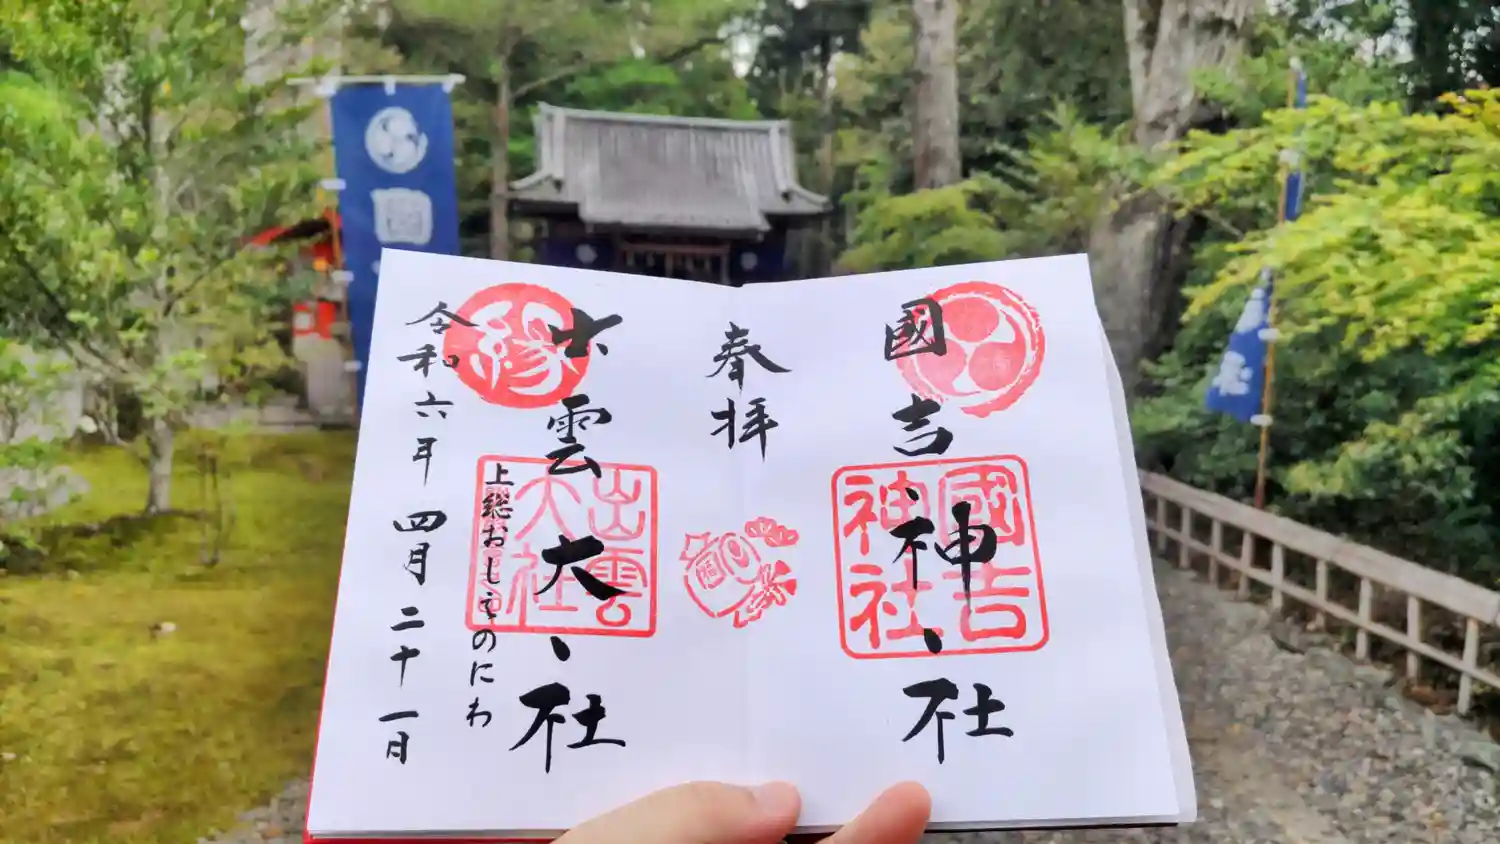 國吉神社
國吉
神社
奉拝
出雲大社
縁
出雲
大社
上総おしゞのにわ
令和六年 四月 二十一日